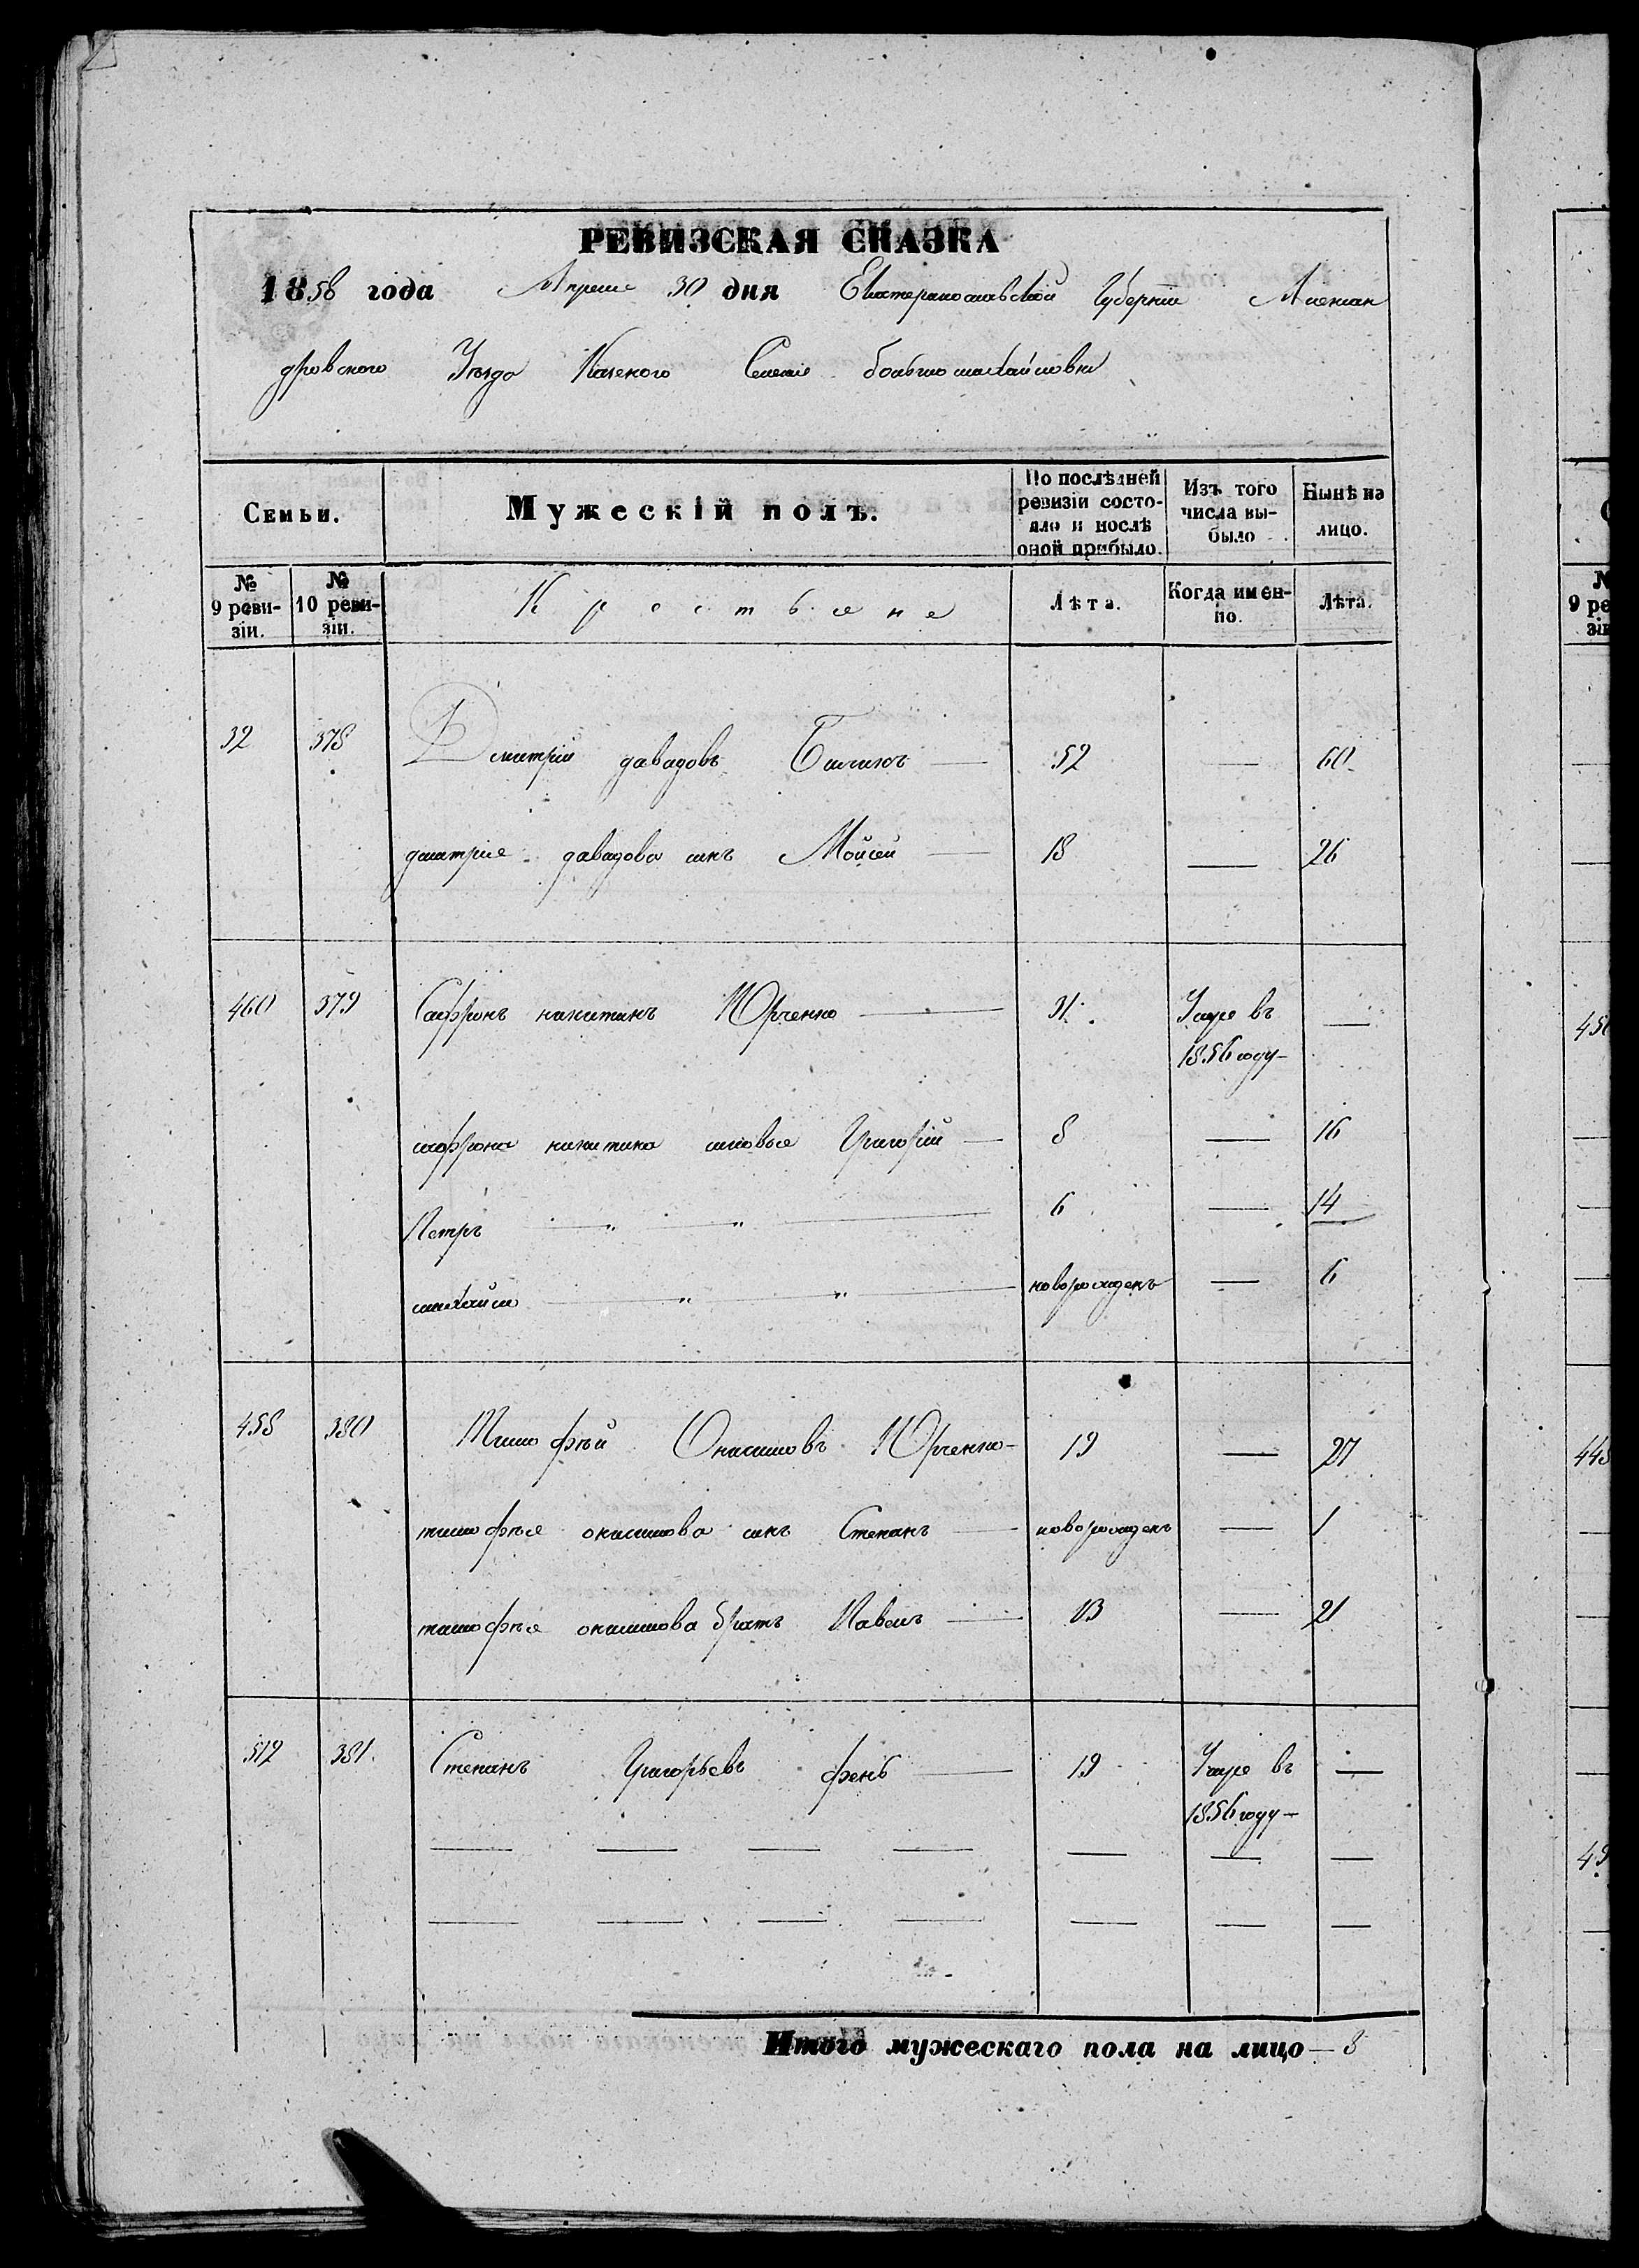 РЕВИЗСКАЯ СКАЗКА
1858 года Апреля 30 дня Екатеринославской Губернии Алексан
дровского Уезда Казеного Селения большомихайловки
Семьи. Мужескій полъ. По послѣдней ревизіи состояло и послѣ оной прибыло. Изъ того числа выбыло Нынѣ на лицо.
№ 9 ревизіи. № 10 ревизіи. Крестьяне Лѣта. Когда именно. Лѣта.
32 378 Дмитрий давадовъ Биликъ — 52 — 60
дмитрие давадова синъ Мойсей — 18 — 26
460 379 Сафронъ никитинъ Юрченко — 31 Умре въ —
1856 году —
сафрона никитина синовье Григорий — 8 — 16
Петръ — „ — „ — 6 — 14
михайло — „ — „ — новорожденъ — 6
458 380 Тимофѣй Онисимовъ Юрченко — 19 — 27
тимофѣе онисимова синъ Степанъ — новорожденъ — 1
тимофѣе онисимова братъ Павелъ — 13 — 21
512 381. Степанъ Григорьевъ фень — 19 Умре въ —
1856 году —
— — — — — — —
— — — — — — —
Итого мужескаго пола на лицо — 8
9 ре
450
448
49